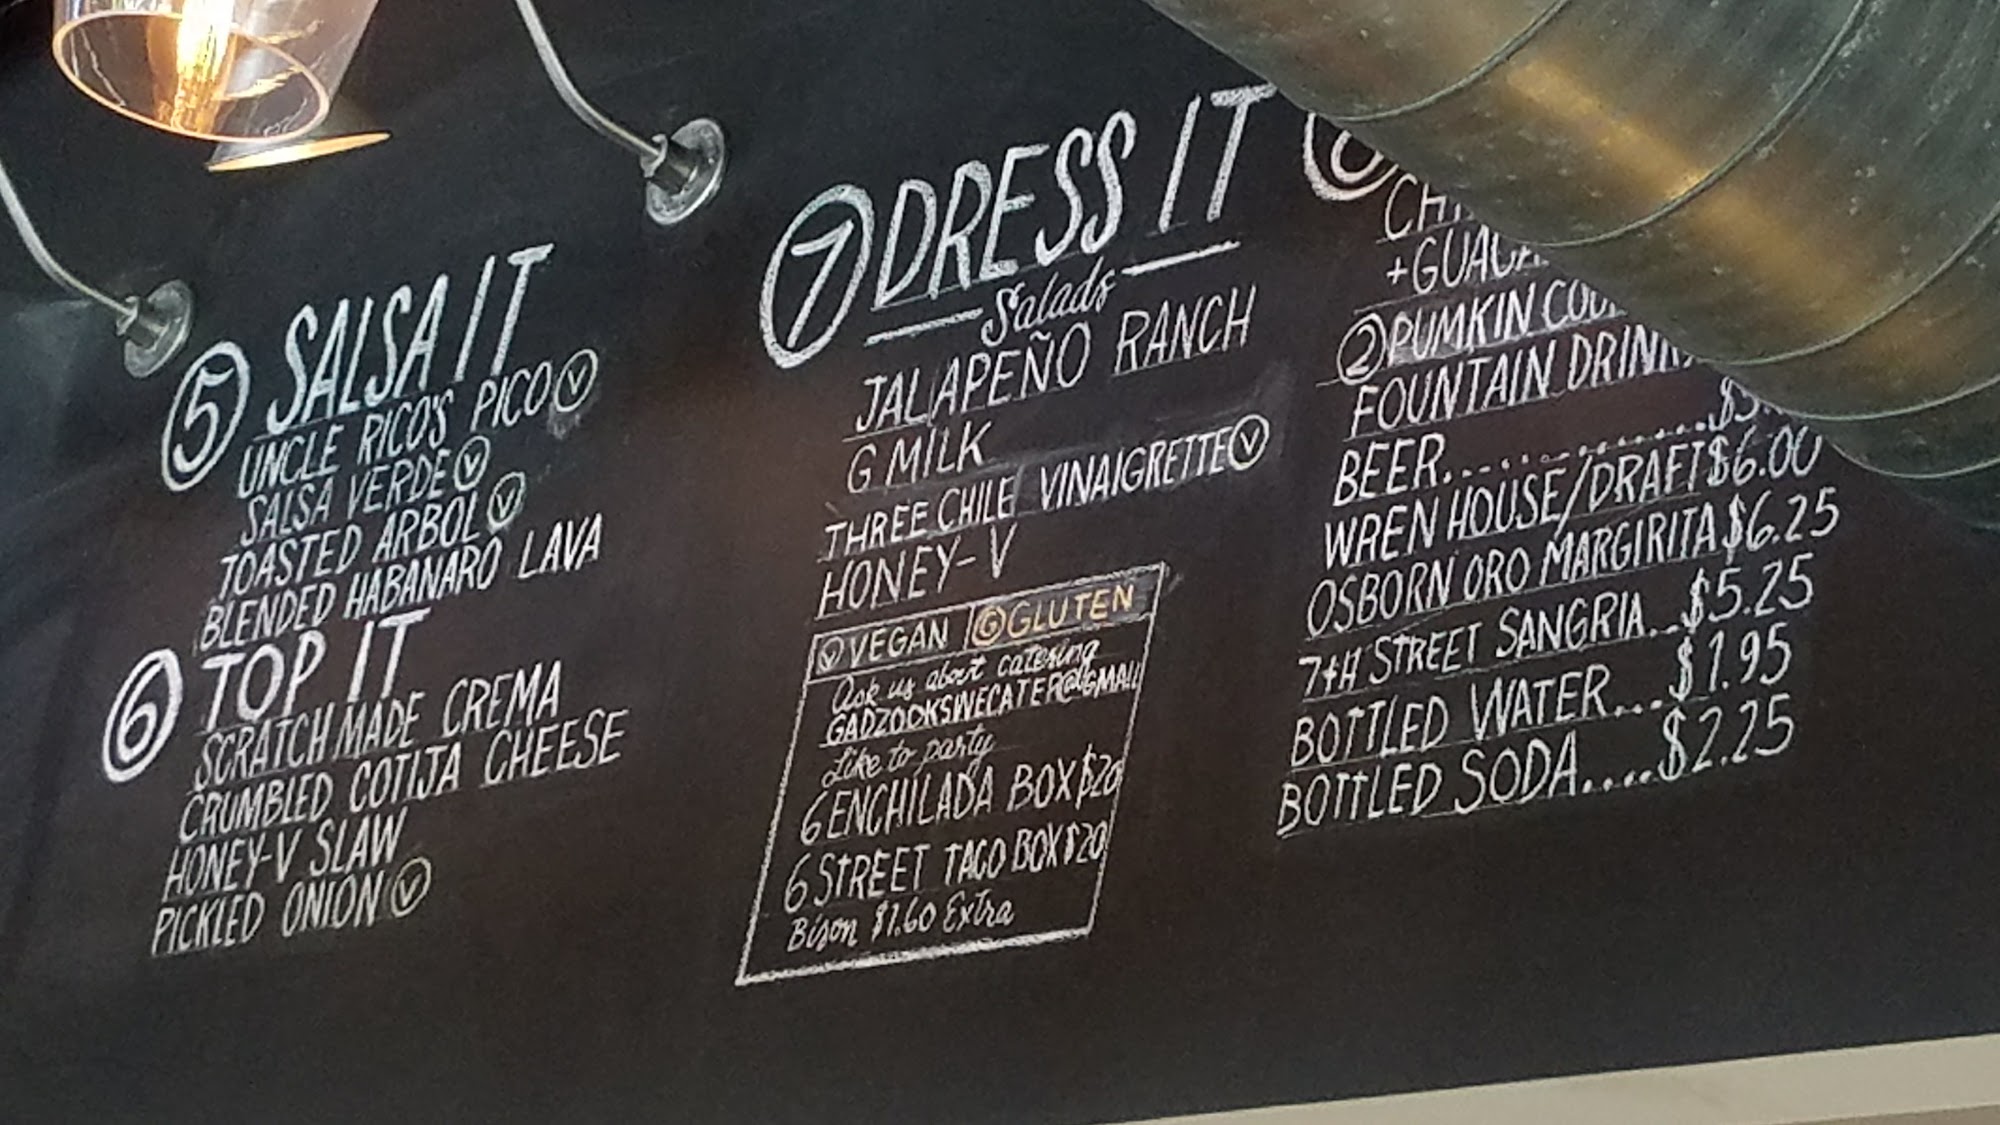 5 SALSA IT
UNCLE RICO'S PICO V
SALSA VERDE V
TOASTED ARBOL V
BLENDED HABANARO LAVA
6 TOP IT
SCRATCH MADE CREMA
CRUMBLED COTIJA CHEESE
HONEY-V SLAW
PICKLED ONION V
7 DRESS IT
Salads
JALAPEÑO RANCH
G MILK
THREE CHILE VINAIGRETTE V
HONEY-V
V VEGAN G GLUTEN
Ask us about catering
GADZOOKSWECATER@GMAIL
Like to party
6 ENCHILADA BOX $20
6 STREET TACO BOX $20
Bison $1.60 Extra
2 PUMKIN
FOUNTAIN
BEER..............
WREN HOUSE/DRAFT $6.00
OSBORN ORO MARGIRITA $6.25
7tH STREET SANGRIA..$5.25
BOTTLED WATER...$1.95
BOTTLED SODA....$2.25